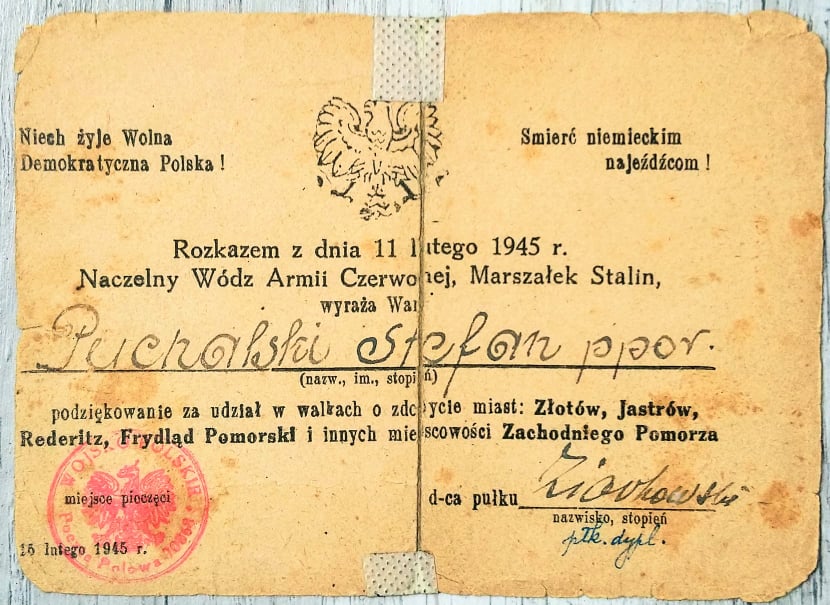 Niech żyje Wolna
Demokratyczna Polska !
Smierć niemieckim
najeźdźcom !
Rozkazem z dnia 11 lutego 1945 r.
Naczelny Wódz Armii Czerwonej, Marszałek Stalin,
wyraża Wam
Puchalski Stefan ppor.
(nazw., im., stopień)
podziękowanie za udział w walkach o zdobycie miast: Złotów, Jastrów,
Rederitz, Frydląd Pomorski i innych miejscowości Zachodniego Pomorza
WOJSKO POLSKIE
miejsce pieczęci
Poczta Polowa
d-ca pułku
nazwisko, stopień
płk. dypl.
15 lutego 1945 r.